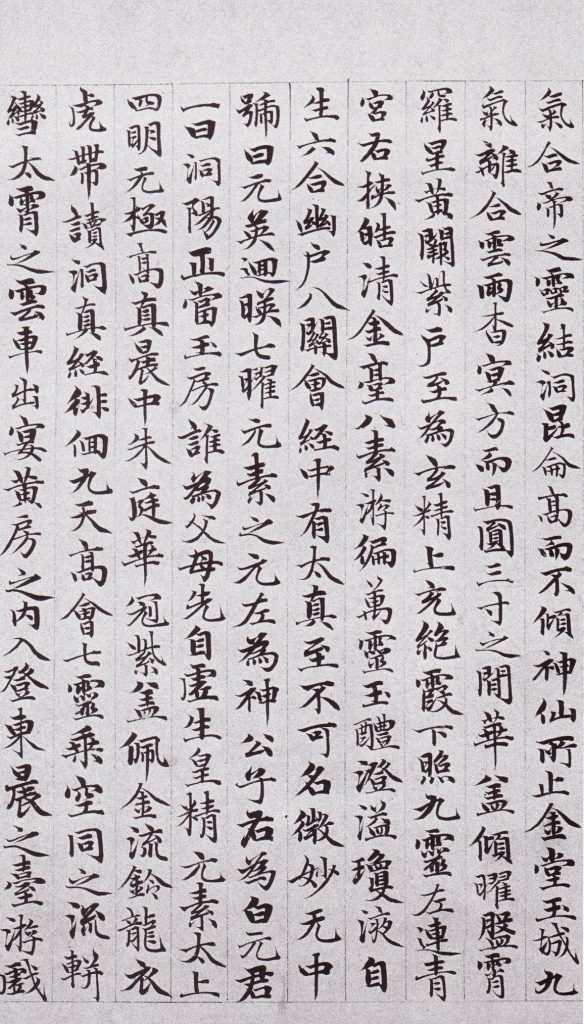 氣合帝之靈結洞昆侖髙而不傾神仙所止金堂玉城九
氣離合雲雨杳冥方而且圎三寸之閒華盖傾曜盤霄
羅星黃闕紫户至為玄精上充絶霞下照九靈左連青
宮右挾皓清金臺八素游徧萬靈玉醴澄溢瓊液自
生六合幽户八關會経中有太真至不可名微妙无中
號曰元英迴暎七曜元素之元左為神公子右為白元君
一曰洞陽正當玉房誰為父母先自虚生皇精元素太上
四明无極髙真晨中朱庭華冠紫盖佩金流鈴龍衣
虎帶讀洞真経徘佪九天髙會七靈乗空同之流軿
轡太霄之雲車出宴黄房之内入登東晨之臺游戲